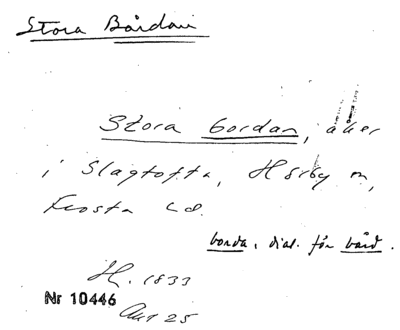 Stora Bårdan
Stora bordan, åker
i Slagtofta, Hörby sn,
Frosta hd.
borda, dial. för bård.
H. 1833
Nr 10446
Akt 25